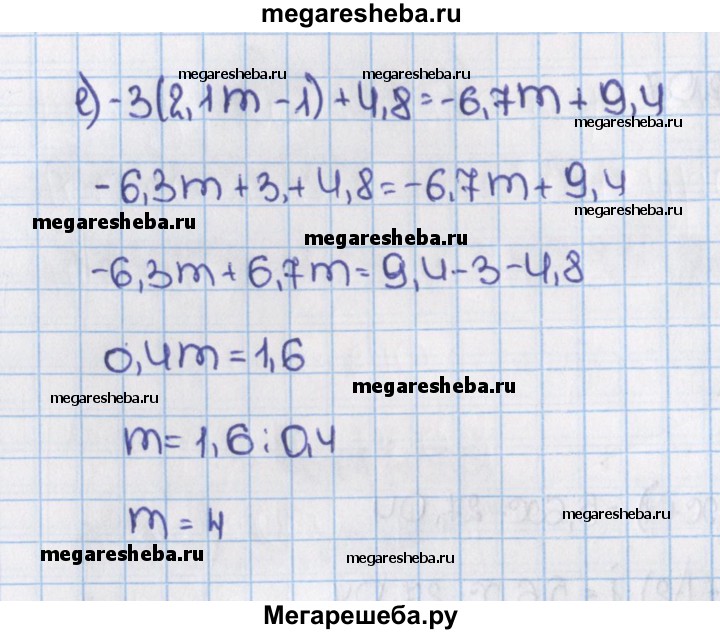 megaresheba.ru
megaresheba.ru megaresheba.ru
е) -3(2,1m -1)+4,8=-6,7m+9,4
megaresheba.ru
-6,3m+3,+4,8=-6,7m+9,4
megaresheba.ru megaresheba.ru
megaresheba.ru
-6,3m+6,7m=9,4-3-4,8
0,4m=1,6
megaresheba.ru megaresheba.ru
m=1,6:0,4
m=4
megaresheba.ru
megaresheba.ru megaresheba.ru
Мегарешеба.ру